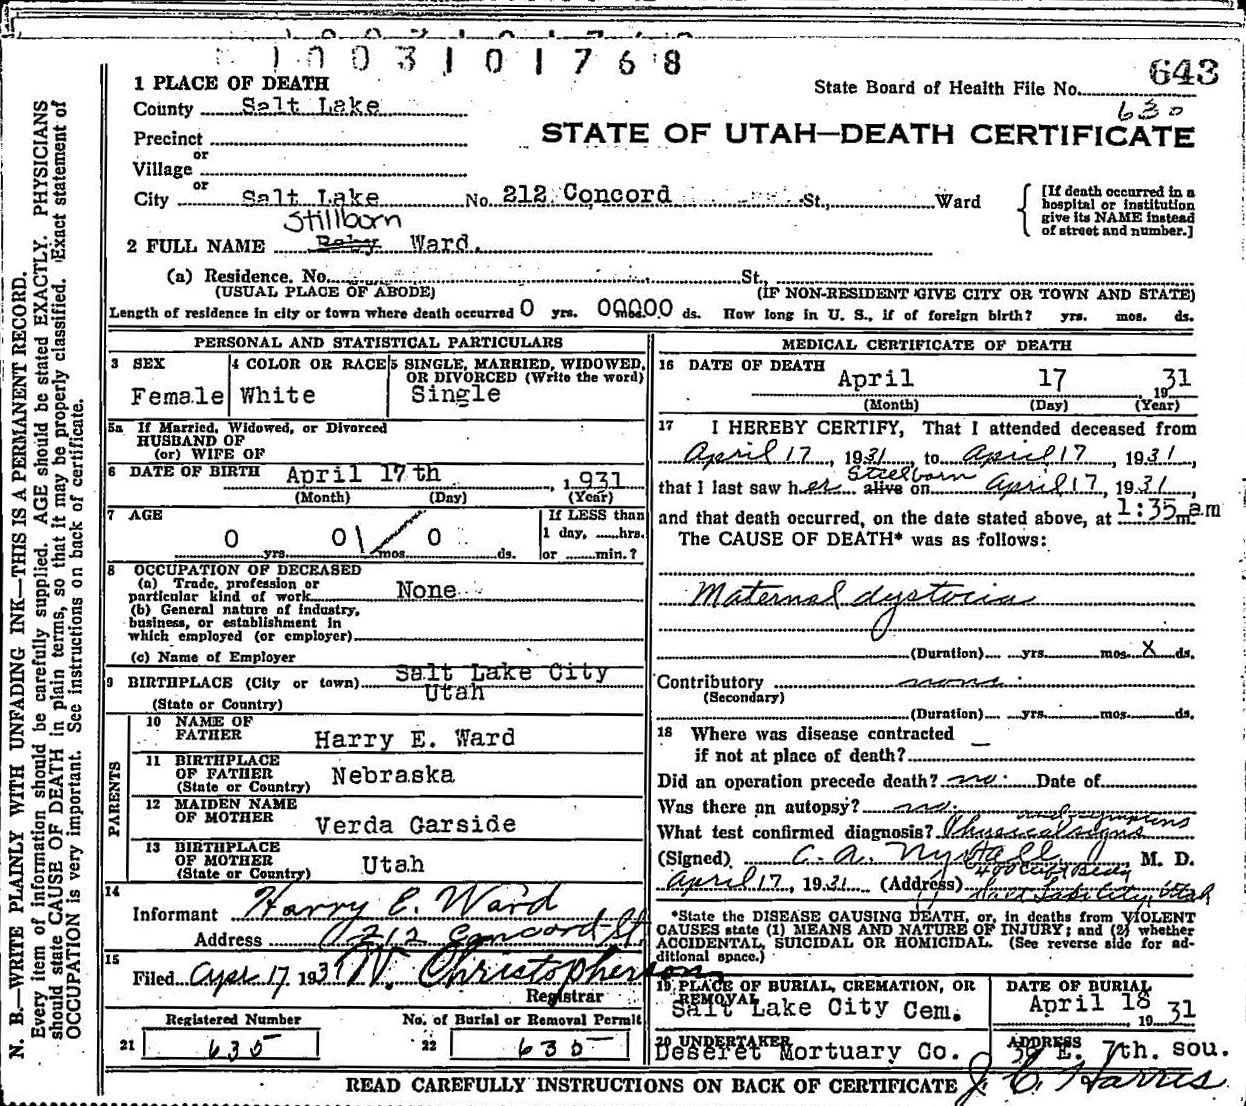 1003101768
1 PLACE OF DEATH
State Board of Health File No. 643
County Salt Lake
630
STATE OF UTAH—DEATH CERTIFICATE
Precinct
or
Village
or
City Salt Lake No. 212 Concord St., Ward
[If death occurred in a hospital or institution give its NAME instead of street and number.]
Stillborn
2 FULL NAME Baby Ward.
(a) Residence. No. St.,
(USUAL PLACE OF ABODE) (IF NON-RESIDENT GIVE CITY OR TOWN AND STATE)
Length of residence in city or town where death occurred 0 yrs. 00 mos. 00 ds. How long in U. S., if of foreign birth? yrs. mos. ds.
PERSONAL AND STATISTICAL PARTICULARS
3 SEX 4 COLOR OR RACE 5 SINGLE, MARRIED, WIDOWED, OR DIVORCED (Write the word)
Female White Single
5a If Married, Widowed, or Divorced
HUSBAND OF
(or) WIFE OF
6 DATE OF BIRTH April 17th , 1931
(Month) (Day) (Year)
7 AGE If LESS than
0 0 0 1 day, hrs.
yrs. mos. ds. or min.?
8 OCCUPATION OF DECEASED
(a) Trade, profession or
particular kind of work None
(b) General nature of industry,
business, or establishment in
which employed (or employer)
(c) Name of Employer
9 BIRTHPLACE (City or town) Salt Lake City
(State or Country) Utah
PARENTS
10 NAME OF
FATHER Harry E. Ward
11 BIRTHPLACE
OF FATHER Nebraska
(State or Country)
12 MAIDEN NAME
OF MOTHER Verda Garside
13 BIRTHPLACE
OF MOTHER Utah
(State or Country)
14
Informant Harry E. Ward
Address 212 Concord St
15
Filed Apr 17 1931 W. Christopherson
Registrar
Registered Number No. of Burial or Removal Permit
21 635 22 635
MEDICAL CERTIFICATE OF DEATH
16 DATE OF DEATH
April 17 1931
(Month) (Day) (Year)
17 I HEREBY CERTIFY, That I attended deceased from
April 17, 1931, to April 17, 1931,
Stillborn
that I last saw her alive on April 17, 1931,
and that death occurred, on the date stated above, at 1:35 m. am
The CAUSE OF DEATH* was as follows:
Maternal dystocia
(Duration) yrs. mos. X ds.
Contributory none.
(Secondary)
(Duration) yrs. mos. ds.
18 Where was disease contracted
if not at place of death? —
Did an operation precede death? no. Date of
Was there an autopsy? no.
and symptoms
What test confirmed diagnosis? Physical signs
(Signed) C. A. Nystall M. D.
April 17, 1931 (Address) Salt Lake City, Utah
*State the DISEASE CAUSING DEATH, or, in deaths from VIOLENT
CAUSES state (1) MEANS AND NATURE OF INJURY; and (2) whether
ACCIDENTAL, SUICIDAL OR HOMICIDAL. (See reverse side for ad-
ditional space.)
19 PLACE OF BURIAL, CREMATION, OR REMOVAL DATE OF BURIAL
Salt Lake City Cem. April 18 1931
20 UNDERTAKER ADDRESS
Deseret Mortuary Co. E. 7th. sou.
J. C. Harris
READ CAREFULLY INSTRUCTIONS ON BACK OF CERTIFICATE
N. B.—WRITE PLAINLY WITH UNFADING INK—THIS IS A PERMANENT RECORD.
Every item of information should be carefully supplied. AGE should be stated EXACTLY. PHYSICIANS
should state CAUSE OF DEATH in plain terms, so that it may be properly classified. Exact statement of
OCCUPATION is very important. See instructions on back of certificate.